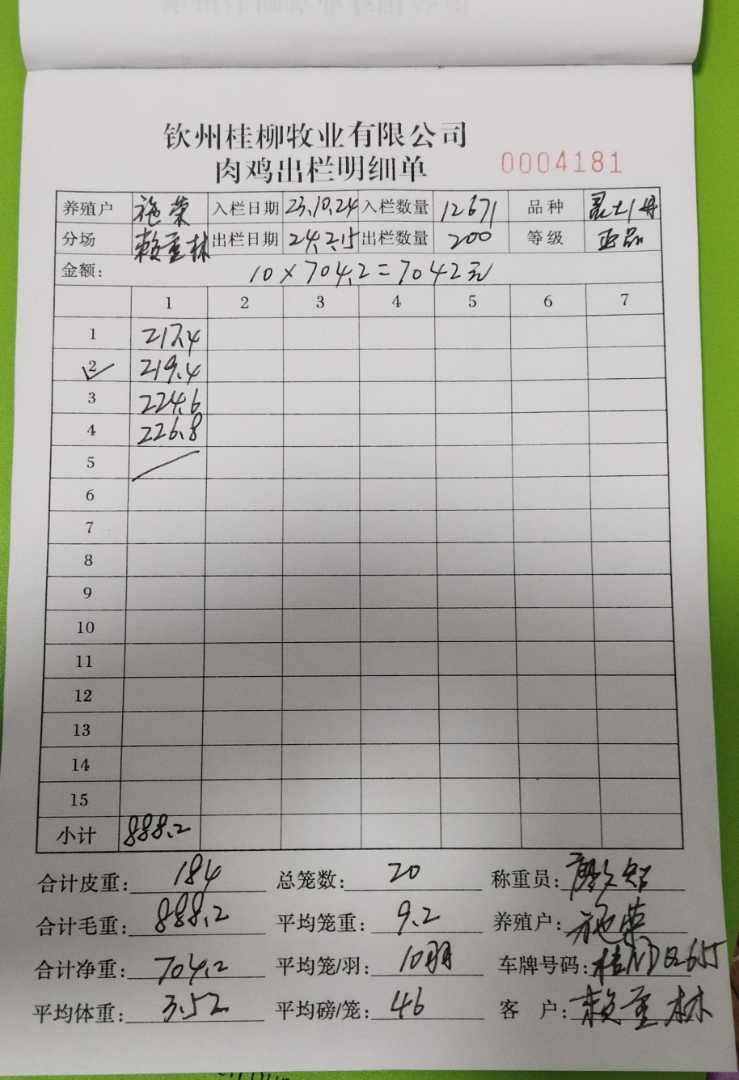 钦州桂柳牧业有限公司
肉鸡出栏明细单 0004181
养殖户 施荣 入栏日期 23.10.24 入栏数量 12671 品种
分场 赖重林 出栏日期 24.2.15 出栏数量 200 等级 正品
金额: 10×704.2=7042元
1 2 3 4 5 6 7
1 217.4
2 219.4
3 224.6
4 226.8
5
6
7
8
9
10
11
12
13
14
15
小计 888.2
合计皮重: 184 总笼数: 20 称重员:
合计毛重: 888.2 平均笼重: 9.2 养殖户: 施荣
合计净重: 704.2 平均笼/羽: 10羽 车牌号码:
平均体重: 3.52 平均磅/笼: 46 客 户: 赖重林